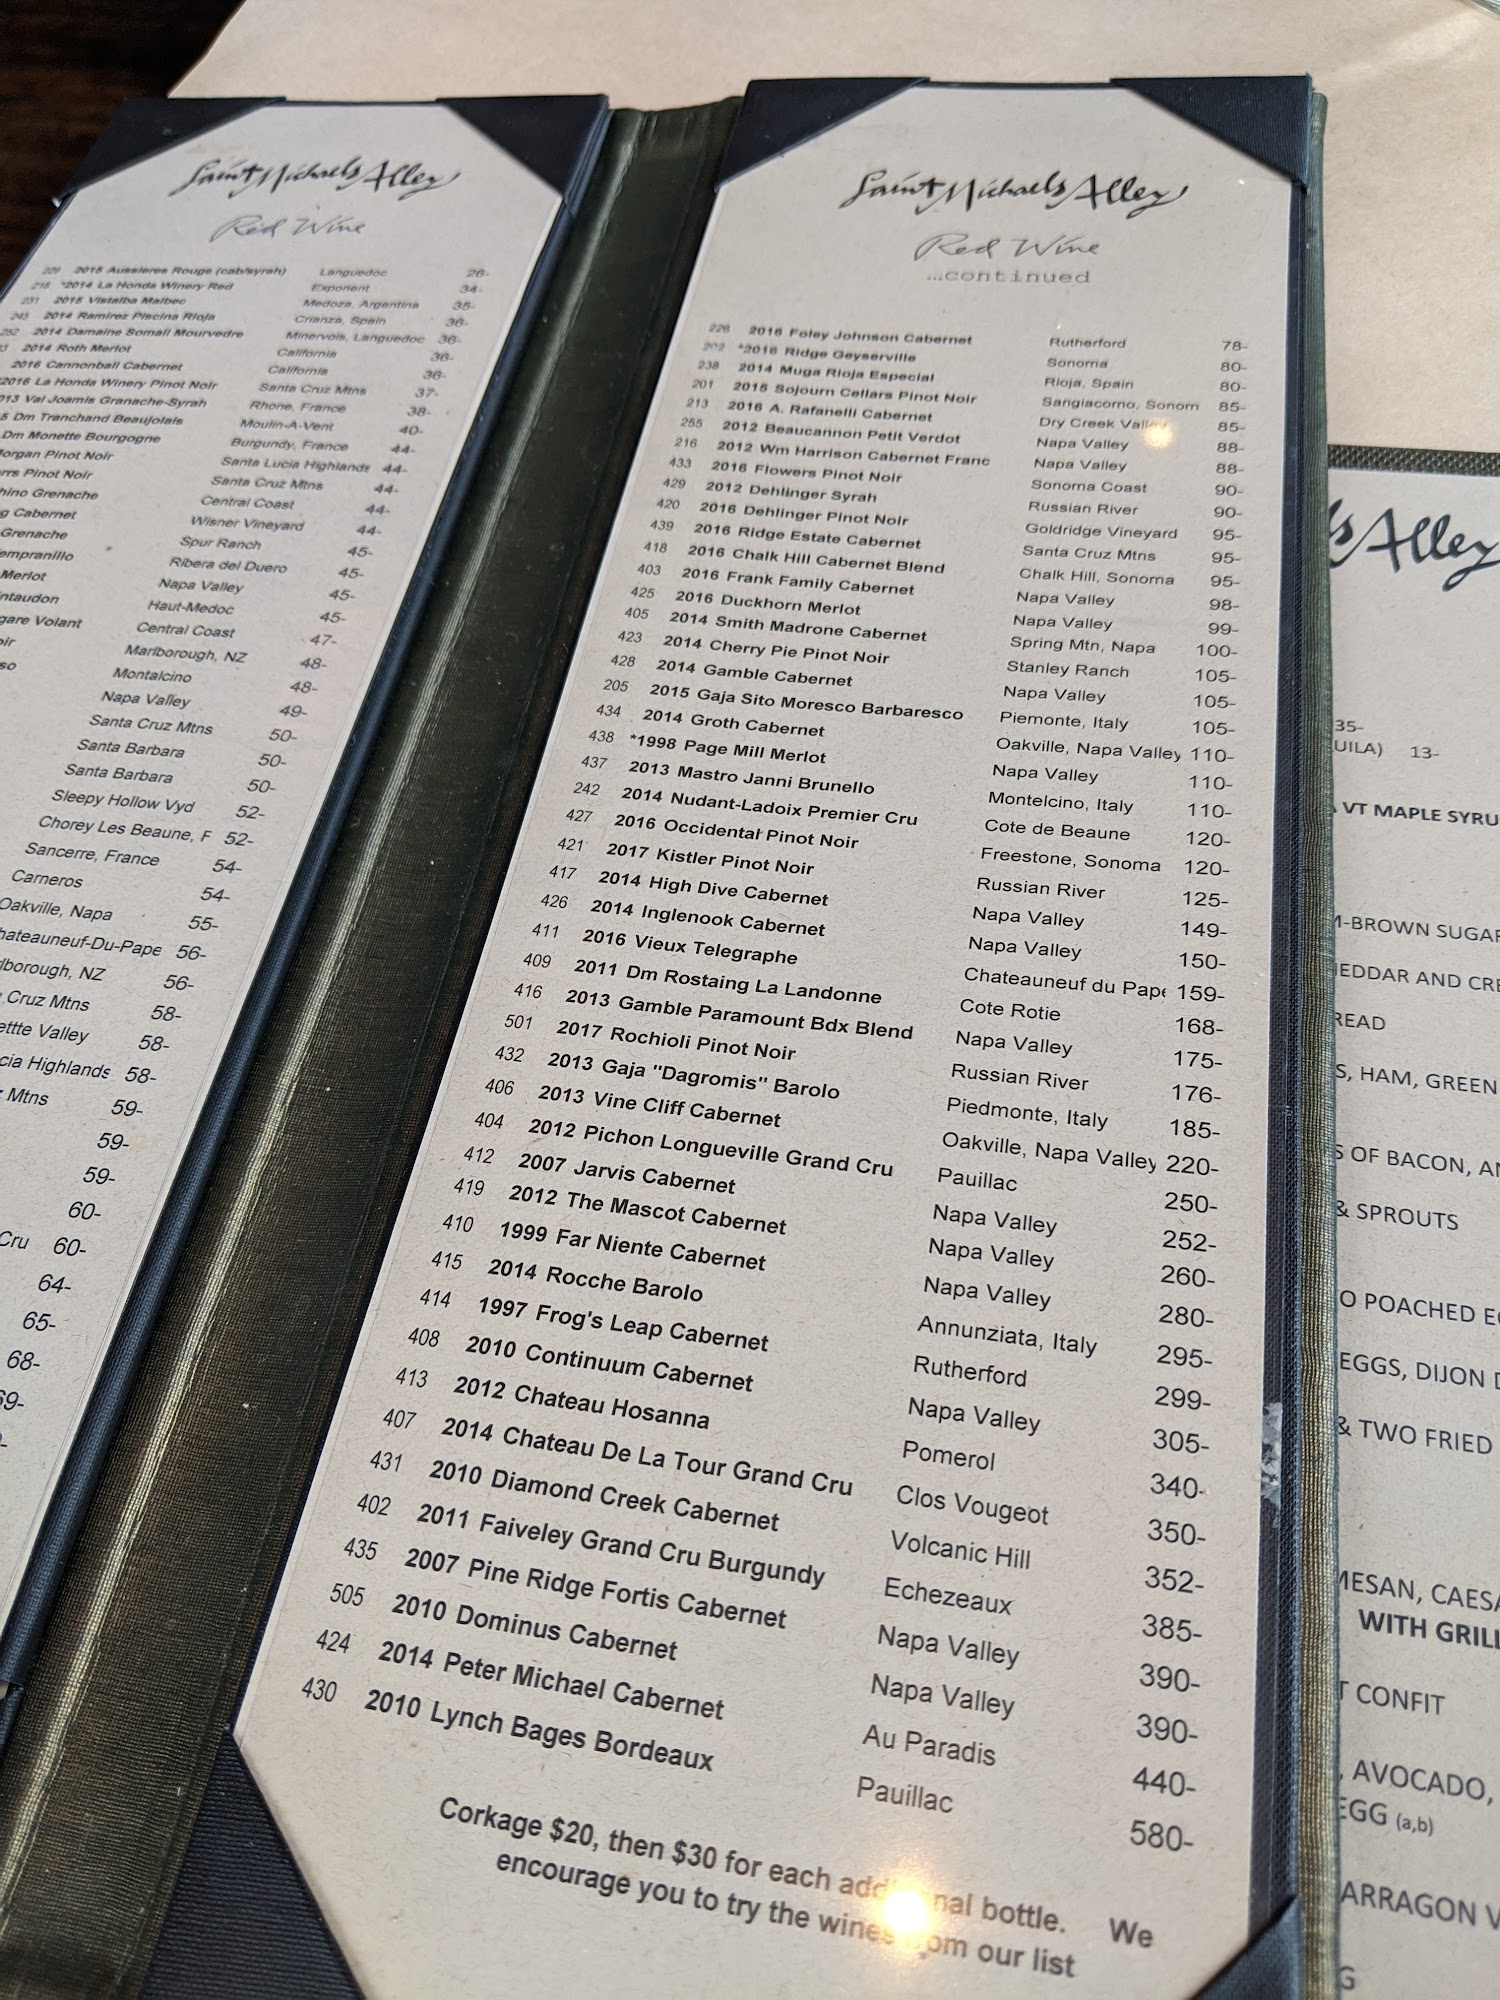 Saint Michaels Alley
Red Wine
229 2015 Aussieres Rouge (cab/syrah) Languedoc 26-
218 *2014 La Honda Winery Red Exponent 34-
231 2015 Vistalba Malbec Medoza, Argentina 35-
245 2014 Ramirez Piscina Rioja Crianza, Spain 36-
252 2014 Damaine Somail Mourvedre Minervois, Languedoc 36-
3 2014 Roth Merlot California 36-
2016 Cannonball Cabernet California 36-
2016 La Honda Winery Pinot Noir Santa Cruz Mtns 37-
013 Val Joamis Granache-Syrah Rhone, France 38-
5 Dm Tranchand Beaujolais Moulin-A-Vent 40-
Dm Monette Bourgogne Burgundy, France 44-
organ Pinot Noir Santa Lucia Highlands 44-
rrs Pinot Noir Santa Cruz Mtns 44-
hino Grenache Central Coast 44-
g Cabernet Wisner Vineyard 44-
Grenache Spur Ranch 45-
empranillo Ribera del Duero 45-
Merlot Napa Valley 45-
ntaudon Haut-Medoc 45-
gare Volant Central Coast 47-
oir Marlborough, NZ 48-
so Montalcino 48-
Napa Valley 49-
Santa Cruz Mtns 50-
Santa Barbara 50-
Santa Barbara 50-
Sleepy Hollow Vyd 52-
Chorey Les Beaune, F 52-
Sancerre, France 54-
Carneros 54-
Oakville, Napa 55-
hateauneuf-Du-Pape 56-
lborough, NZ 56-
Cruz Mtns 58-
ettte Valley 58-
cia Highlands 58-
Mtns 59-
59-
59-
60-
Cru 60-
64-
65-
68-
69-
Saint Michaels Alley
Red Wine
...continued
226 2016 Foley Johnson Cabernet Rutherford 78-
202 *2016 Ridge Geyserville Sonoma 80-
238 2014 Muga Rioja Especial Rioja, Spain 80-
201 2015 Sojourn Cellars Pinot Noir Sangiacomo, Sonom 85-
213 2016 A. Rafanelli Cabernet Dry Creek Valley 85-
255 2012 Beaucannon Petit Verdot Napa Valley 88-
216 2012 Wm Harrison Cabernet Franc Napa Valley 88-
433 2016 Flowers Pinot Noir Sonoma Coast 90-
429 2012 Dehlinger Syrah Russian River 90-
420 2016 Dehlinger Pinot Noir Goldridge Vineyard 95-
439 2016 Ridge Estate Cabernet Santa Cruz Mtns 95-
418 2016 Chalk Hill Cabernet Blend Chalk Hill, Sonoma 95-
403 2016 Frank Family Cabernet Napa Valley 98-
425 2016 Duckhorn Merlot Napa Valley 99-
405 2014 Smith Madrone Cabernet Spring Mtn, Napa 100-
423 2014 Cherry Pie Pinot Noir Stanley Ranch 105-
428 2014 Gamble Cabernet Napa Valley 105-
205 2015 Gaja Sito Moresco Barbaresco Piemonte, Italy 105-
434 2014 Groth Cabernet Oakville, Napa Valley 110-
438 *1998 Page Mill Merlot Napa Valley 110-
437 2013 Mastro Janni Brunello Montelcino, Italy 110-
242 2014 Nudant-Ladoix Premier Cru Cote de Beaune 120-
427 2016 Occidental Pinot Noir Freestone, Sonoma 120-
421 2017 Kistler Pinot Noir Russian River 125-
417 2014 High Dive Cabernet Napa Valley 149-
426 2014 Inglenook Cabernet Napa Valley 150-
411 2016 Vieux Telegraphe Chateauneuf du Pape 159-
409 2011 Dm Rostaing La Landonne Cote Rotie 168-
416 2013 Gamble Paramount Bdx Blend Napa Valley 175-
501 2017 Rochioli Pinot Noir Russian River 176-
432 2013 Gaja "Dagromis" Barolo Piedmonte, Italy 185-
406 2013 Vine Cliff Cabernet Oakville, Napa Valley 220-
404 2012 Pichon Longueville Grand Cru Pauillac 250-
412 2007 Jarvis Cabernet Napa Valley 252-
419 2012 The Mascot Cabernet Napa Valley 260-
410 1999 Far Niente Cabernet Napa Valley 280-
415 2014 Rocche Barolo Annunziata, Italy 295-
414 1997 Frog's Leap Cabernet Rutherford 299-
408 2010 Continuum Cabernet Napa Valley 305-
413 2012 Chateau Hosanna Pomerol 340-
407 2014 Chateau De La Tour Grand Cru Clos Vougeot 350-
431 2010 Diamond Creek Cabernet Volcanic Hill 352-
402 2011 Faiveley Grand Cru Burgundy Echezeaux 385-
435 2007 Pine Ridge Fortis Cabernet Napa Valley 390-
505 2010 Dominus Cabernet Napa Valley 390-
424 2014 Peter Michael Cabernet Au Paradis 440-
430 2010 Lynch Bages Bordeaux Pauillac 580-
Corkage $20, then $30 for each additional bottle. We
encourage you to try the wines from our list
ls Alley
35-
UILA) 13-
A VT MAPLE SYRU
M-BROWN SUGAR
EDDAR AND CRE
READ
S, HAM, GREEN
S OF BACON, AN
& SPROUTS
O POACHED EG
EGGS, DIJON D
& TWO FRIED
MESAN, CAESA
WITH GRILL
T CONFIT
, AVOCADO,
EGG (a,b)
ARRAGON V
G